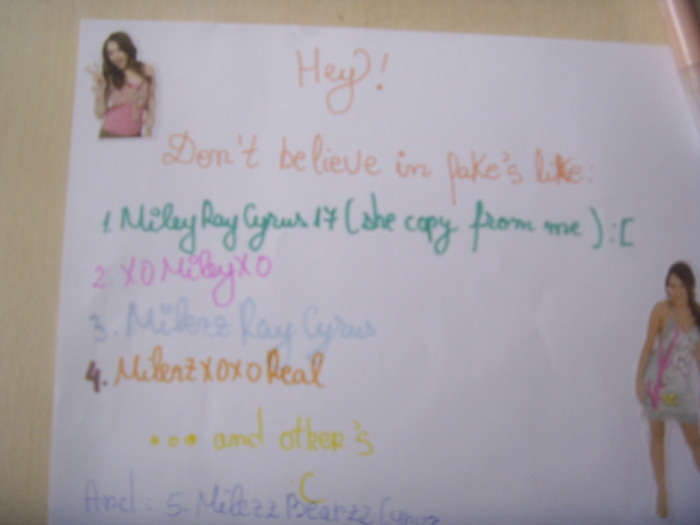 Hey!
Don't believe in fake's like:
1 MileyRayCyrus17 (she copy from me) :[
2 XOMileyXO
3. Milerzz Ray Cyrus
4. MilerzXOXOReal
... and other's
:C
And: 5. Milezz Bearzz Cyruz